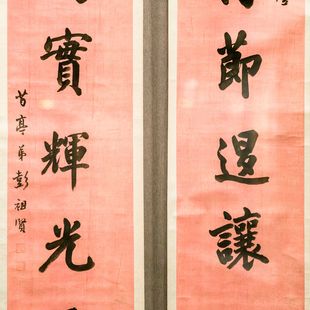 節退讓
實輝光
芍亭弟彭祖賢